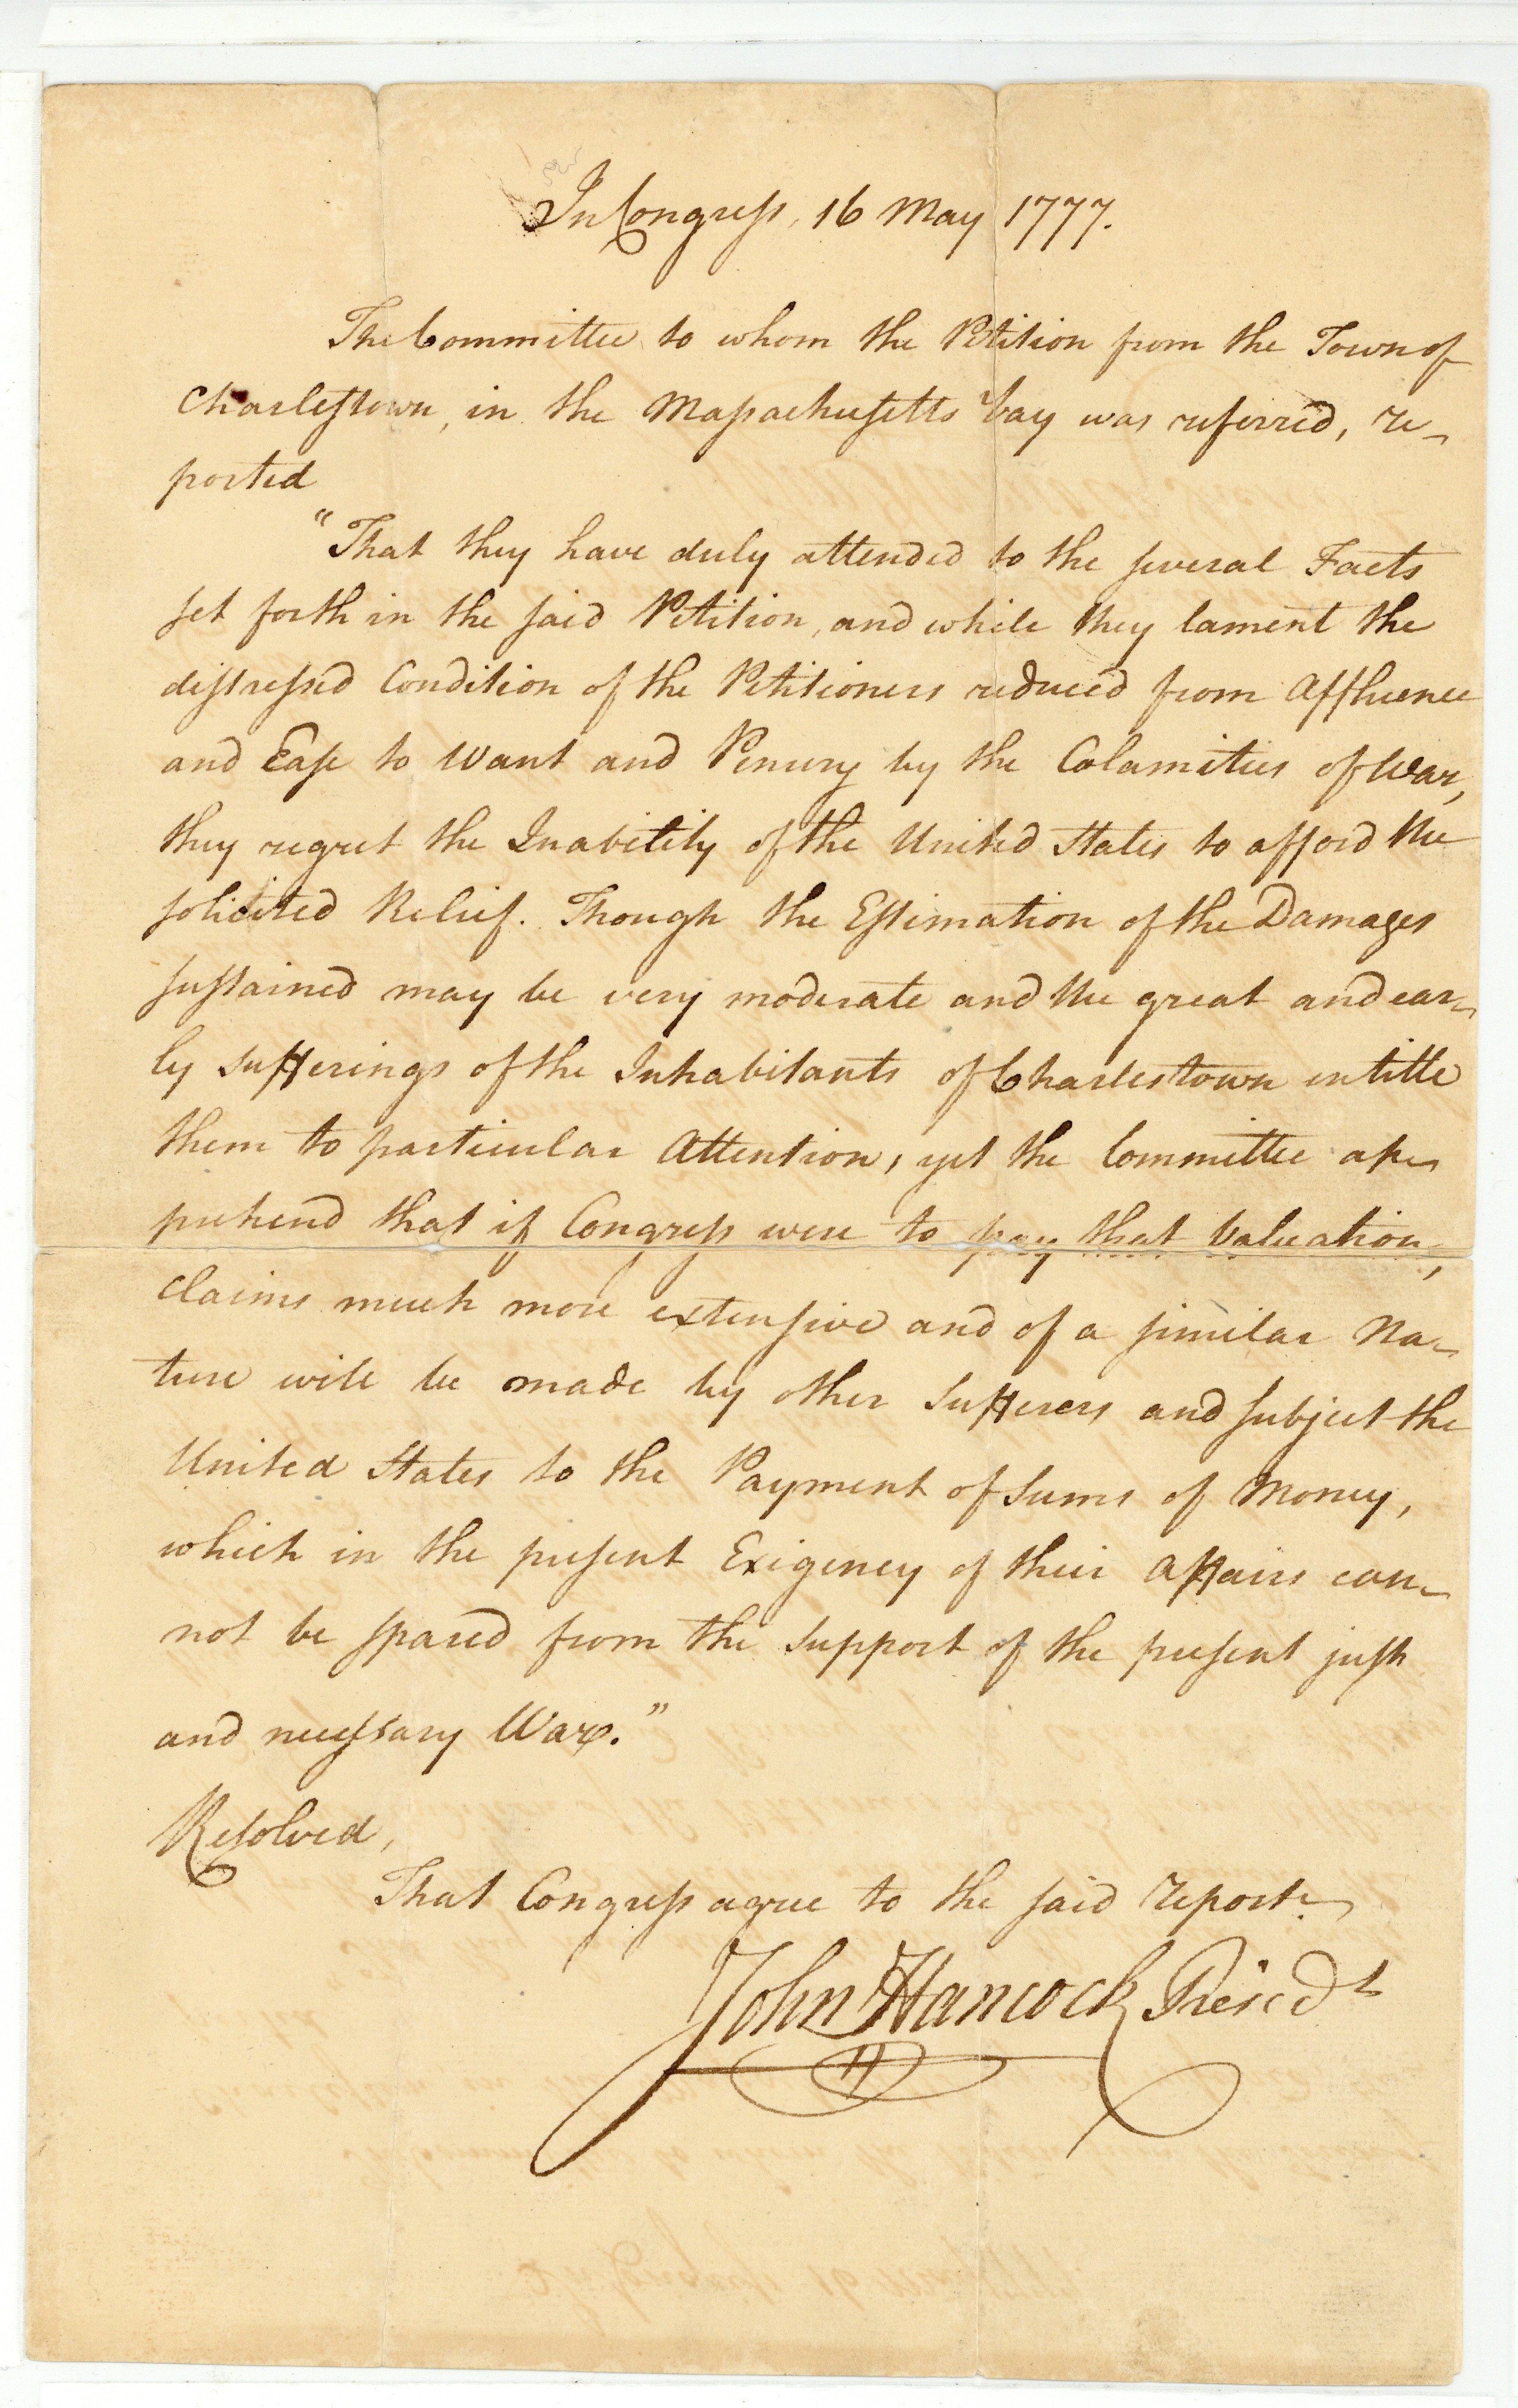 In Congress, 16 May 1777.
The Committee to whom the Petition from the Town of
Charlestown, in the Massachusetts bay was referred, re-
ported
"That they have duly attended to the several Facts
set forth in the said Petition, and while they lament the
distressed Condition of the Petitioners reduced from Affluence
and Ease to Want and Penury by the Calamities of War,
they regret the Inability of the United States to afford the
solicited Relief. Though the Estimation of the Damages
sustained may be very moderate and the great and ear-
ly sufferings of the Inhabitants of Charlestown entitle
them to particular Attention, yet the Committee ap-
prehend that if Congress were to pay that Valuation,
Claims much more extensive and of a similar Na-
ture will be made by other Sufferers and subject the
United States to the Payment of Sums of Money,
which in the present Exigency of their Affairs can-
not be spared from the support of the present just
and necessary War."
Resolved,
That Congress agree to the said report.
John Hancock Presidt